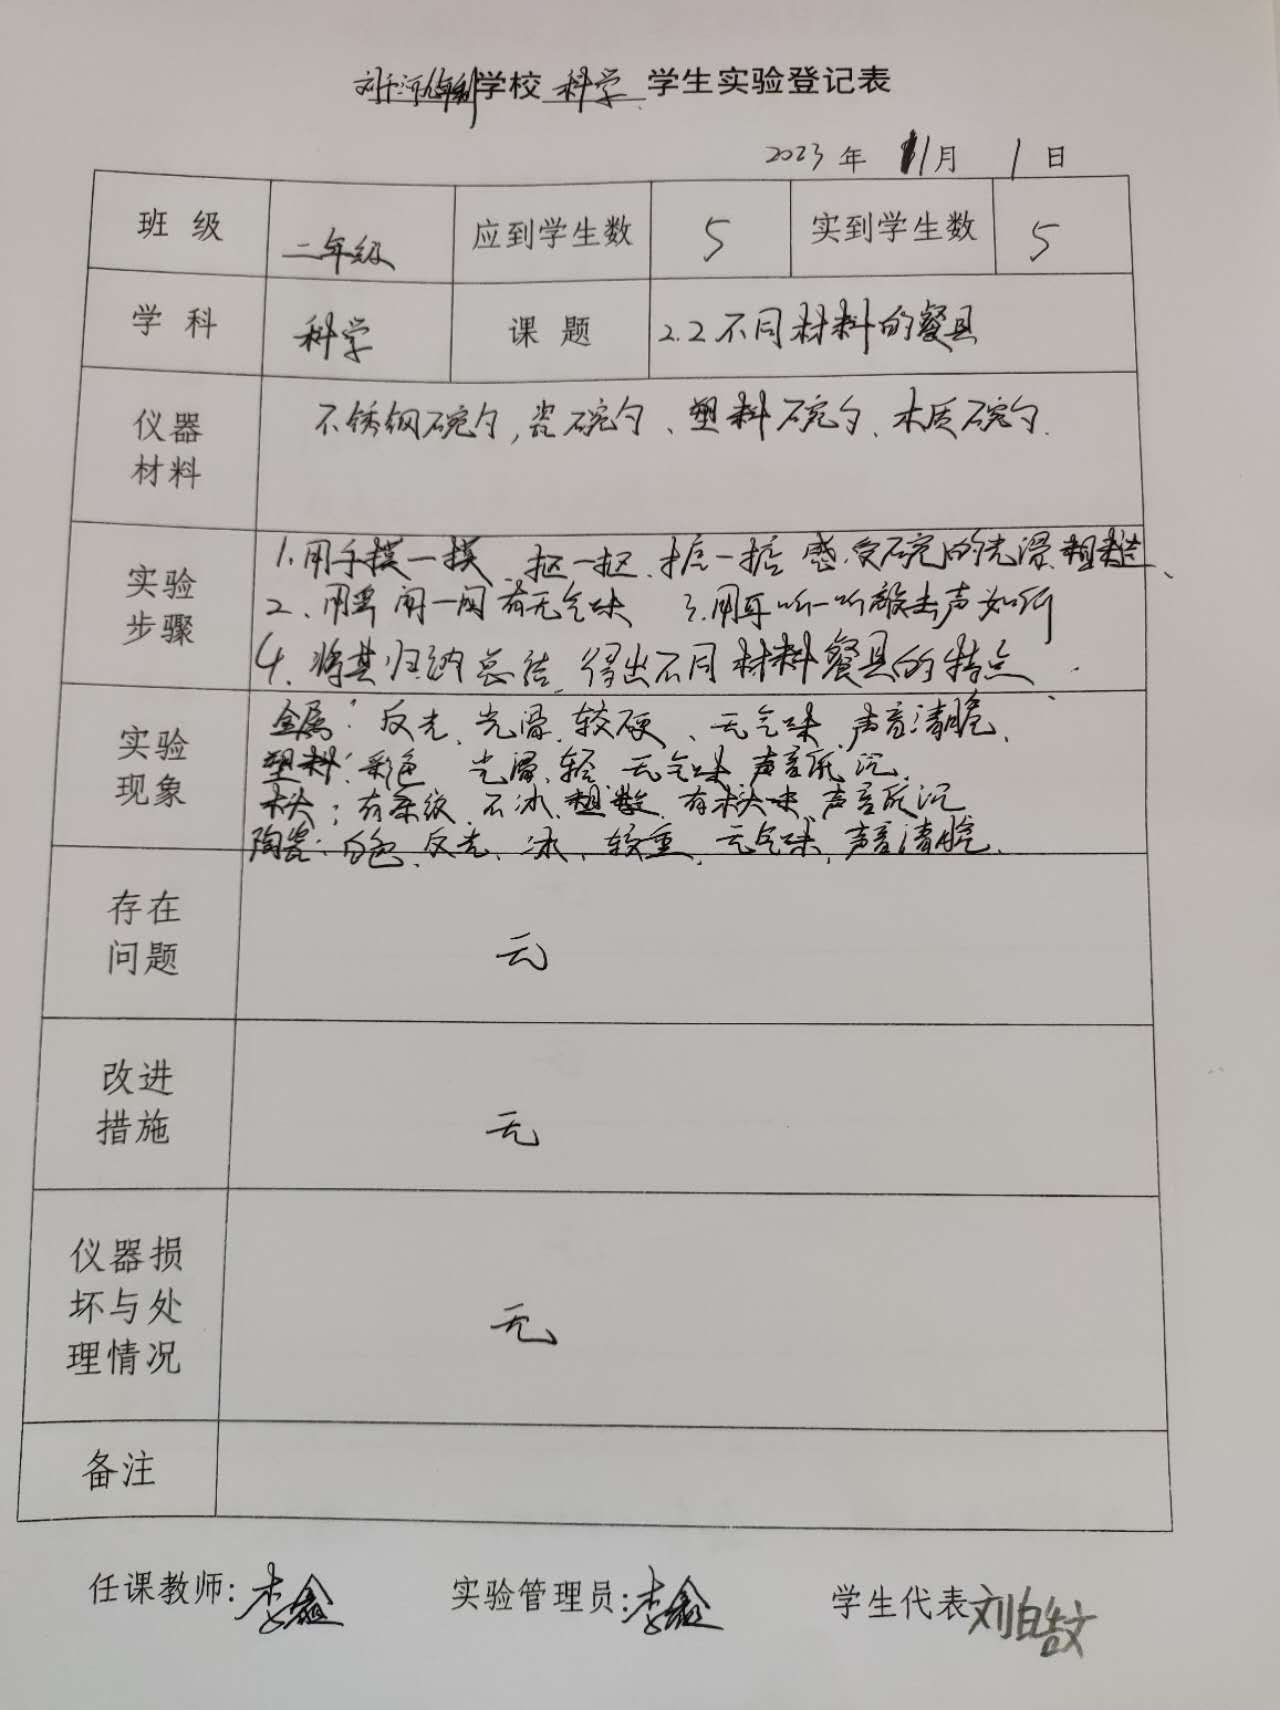 学校 科学 学生实验登记表
2023 年 11月 1 日
班 级 二年级 应到学生数 5 实到学生数 5
学 科 科学 课 题 2.2不同材料的餐具
仪器
材料
不锈钢碗勺,瓷碗勺、塑料碗勺、木质碗勺.
实验
步骤
1.用手摸一摸、抠一抠、掂一掂 感受碗的光滑、粗糙、
2、用鼻闻一闻有无气味 3.用耳听一听敲击声如何
4、将其归纳总结,得出不同材料餐具的特点.
实验
现象
金属:反光、光滑、较硬、无气味、声音清脆、
塑料:彩色 光滑、轻、无气味、声音低沉、
木头:有条纹、不冰、粗糙、有木头味、声音低沉
陶瓷:白色、反光、冰、较重、无气味、声音清脆、
存在
问题
无
改进
措施
无
仪器损
坏与处
理情况
无
备注
任课教师:李鑫 实验管理员:李鑫 学生代表